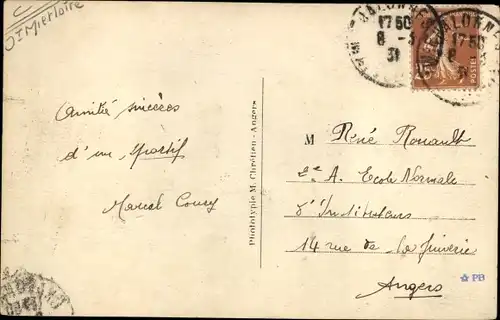 M et Loire
17 50
8 - 3
31
17 50
8
31
POSTES
Amitiés sincères
d'un sportif
Marcel
Phototypie M. Chrétien - Angers
M René Rouault
2e A. Ecole Normale
d'Instituteurs
14 rue de la Juiverie
Angers
PB